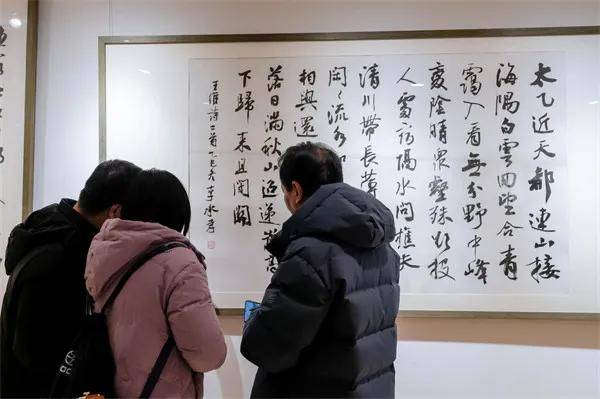 太乙近天都連山接
海隅白雲回望合青
靄入看無分野中峰
變陰晴眾壑殊欲投
人處宿隔水問樵夫
清川帶長薄
閑〻流水如
相與還
落日滿秋山迢遞嵩高
下歸來且閉關
王維詩二首乙巳